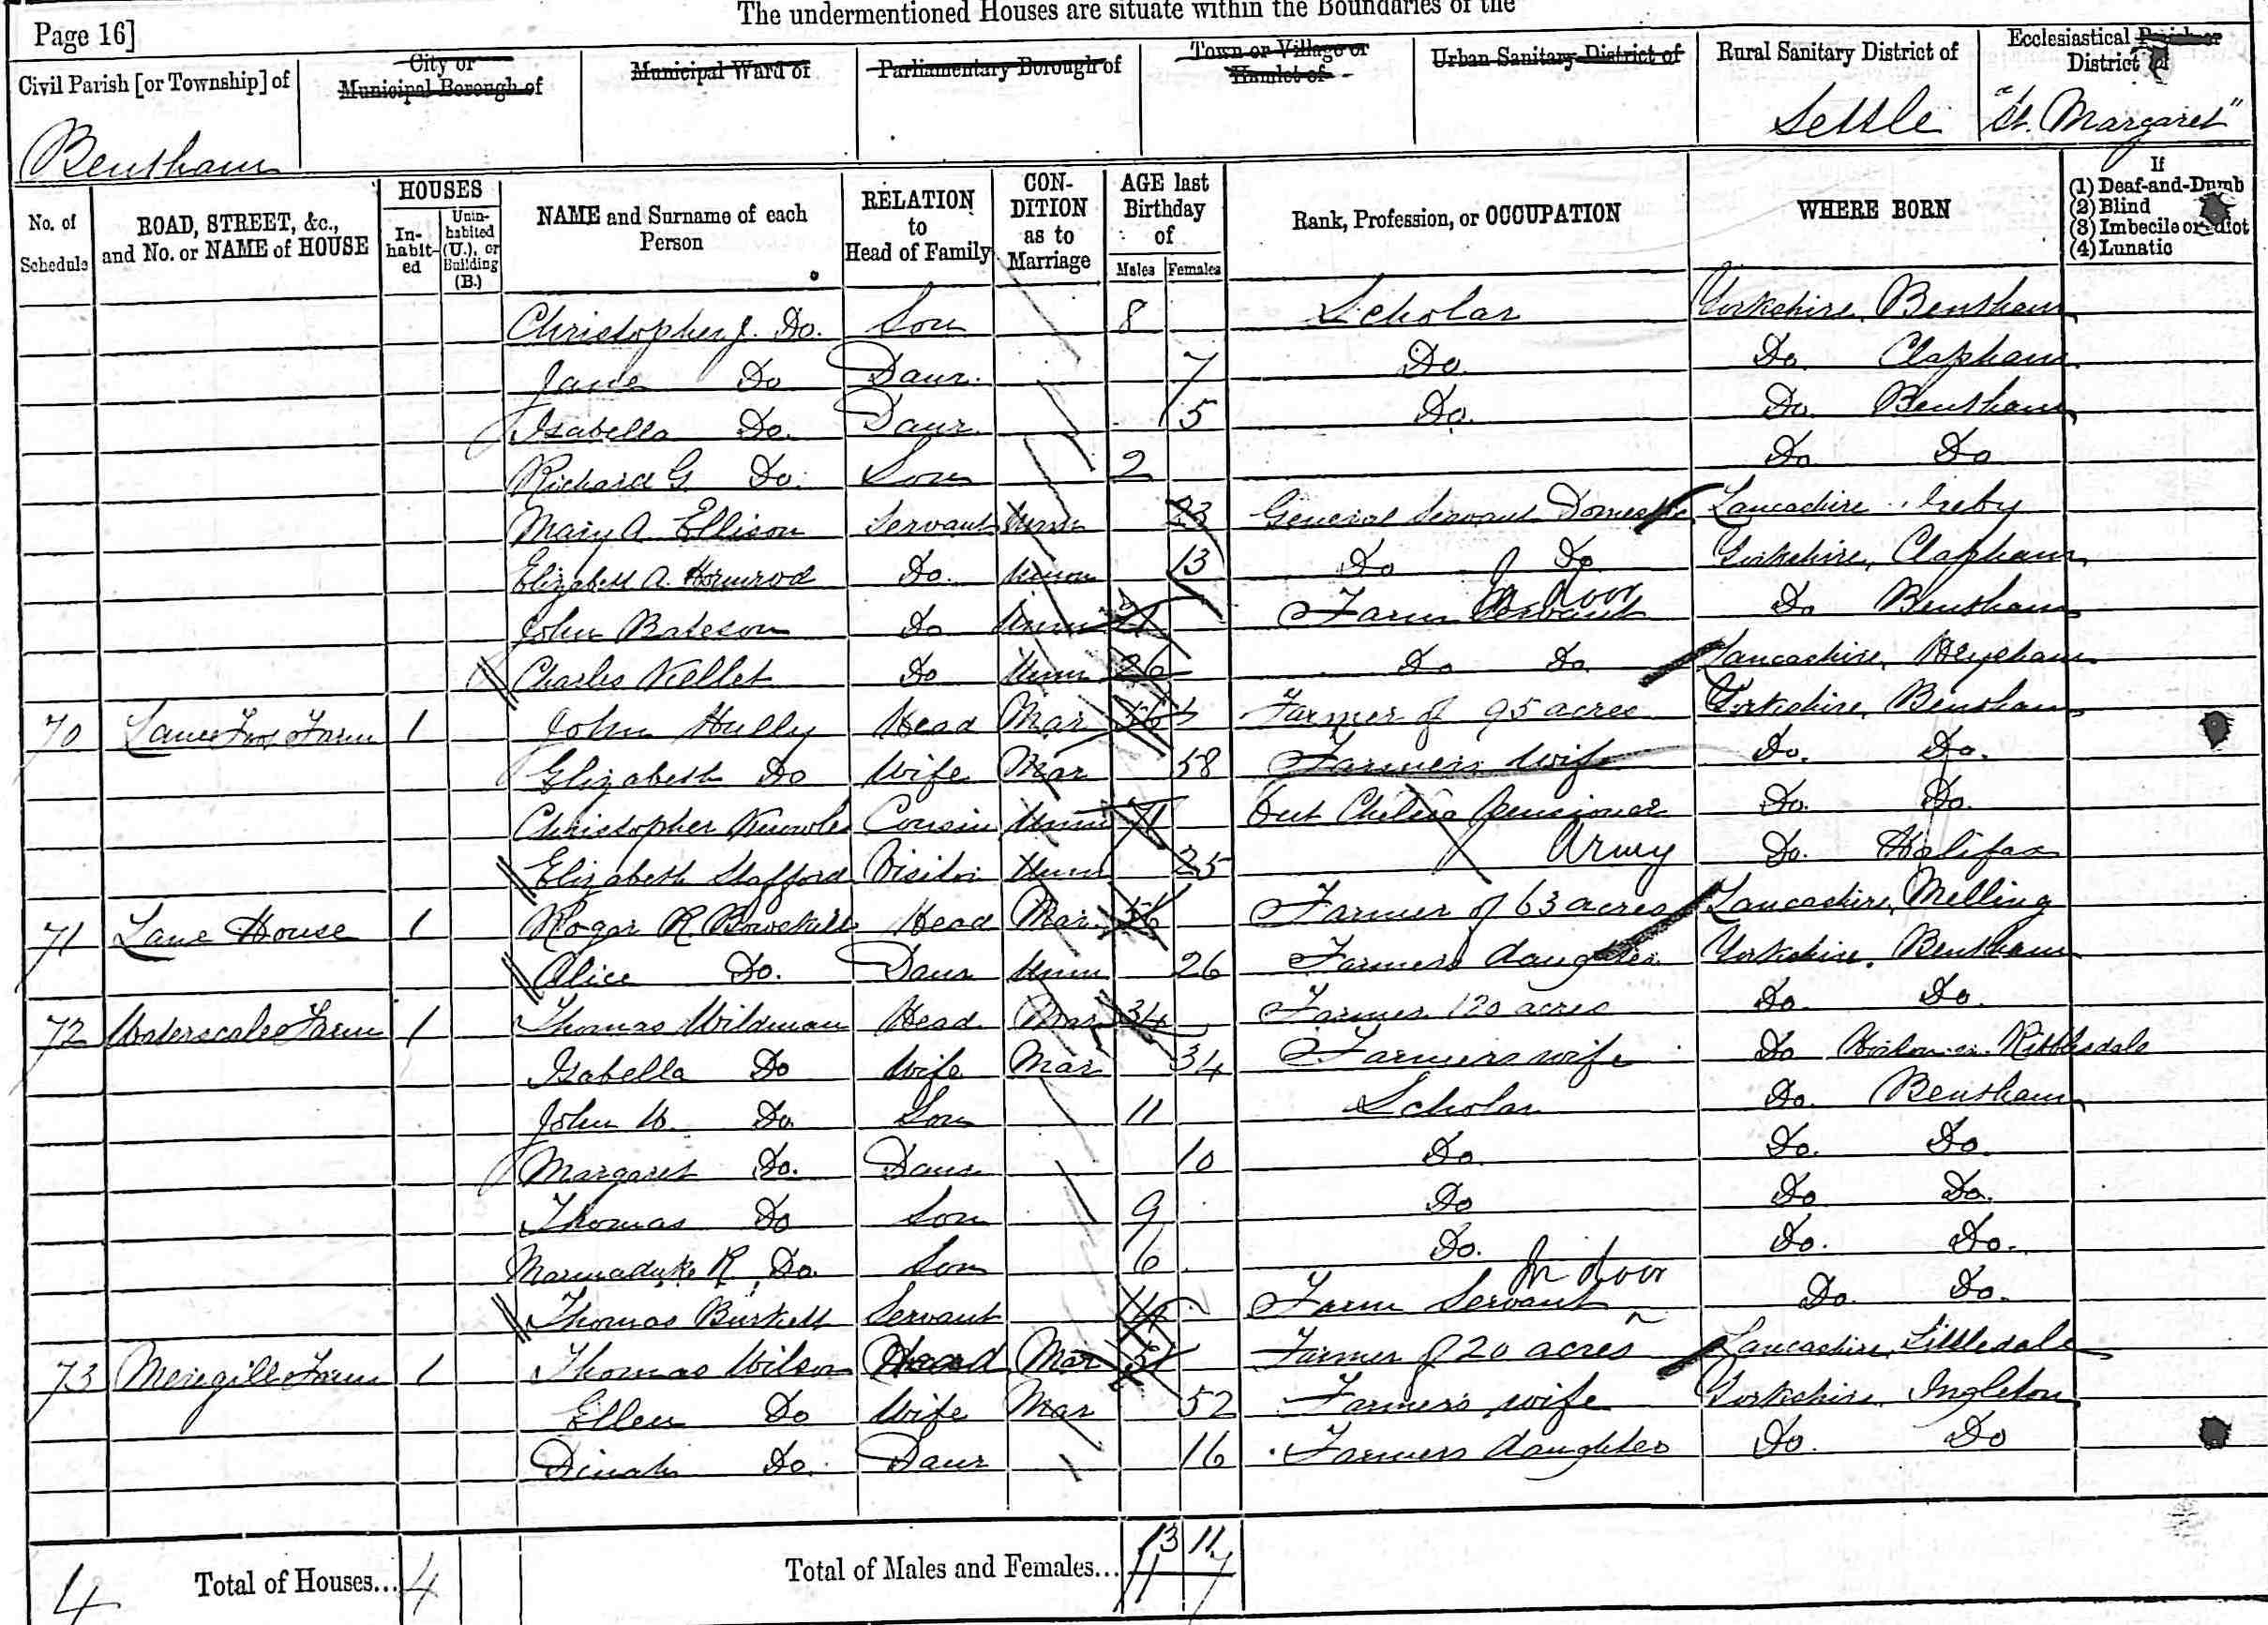 The undermentioned Houses are situate within the Boundaries of the
Page 16]
Civil Parish [or Township] of
City or Municipal Borough of
Municipal Ward of
Parliamentary Borough of
Town or Village or Hamlet of
Urban Sanitary District of
Rural Sanitary District of
Ecclesiastical Parish or District of
Bentham Settle "St. Margaret"
No. of Schedule
ROAD, STREET, &c., and No. or NAME of HOUSE
HOUSES
In-habit-ed
Unin-habited (U.), or Building (B.)
NAME and Surname of each Person
RELATION to Head of Family
CON-DITION as to Marriage
AGE last Birthday of
Males Females
Rank, Profession, or OCCUPATION
WHERE BORN
If
(1) Deaf-and-Dumb
(2) Blind
(3) Imbecile or Idiot
(4) Lunatic
Christopher J. Do. Son 8 Scholar Yorkshire, Bentham
Jane Do Daur. 7 Do. Do. Clapham
Isabella Do. Daur. 5 Do. Do. Bentham
Richard G. Do. Son 2 Do Do
Mary A. Ellison Servant Unm 23 General Servant Domestic Lancashire Ireby
Elizabeth A. Do. Unm 13 Do Do Yorkshire, Clapham
John Bateson Do Unm 21 Farm Servant In door Do Bentham
Charles Kellet Do Unm 26 Do Do Lancashire, Heysham
70 Farm 1 John Hully Head Mar 56 Farmer of 95 acres Yorkshire, Bentham
Elizabeth Do Wife Mar 58 Farmers wife Do. Do.
Christopher Knowles Cousin Unm 71 Out Chelsea Pensioner Do. Do.
Army
Elizabeth Stafford Visitor Unm 25 Do. Halifax
71 Lane House 1 Roger R. Head Mar 56 Farmer of 63 acres Lancashire, Melling
Alice Do. Daur Unm 26 Farmers daughter Yorkshire. Bentham
72 Waterscales Farm 1 Thomas Wildman Head Mar 34 Farmer 120 acres Do. Do.
Isabella Do Wife Mar 34 Farmers wife Do Horton in Ribblesdale
John W. Do. Son 11 Scholar Do. Bentham
Margaret Do. Daur 10 Do. Do. Do.
Thomas Do Son 9 Do Do Do.
Marmaduke R. Do. Son 6 Do. Do. Do.
Thomas Burkett Servant 14 Farm Servant In door Do. Do.
73 Meregill Farm 1 Thomas Wilson Head Mar 51 Farmer of 20 acres Lancashire, Littledale
Ellen Do Wife Mar 52 Farmers wife Yorkshire, Ingleton
Dinah Do. Daur 16 Farmers daughter Do. Do
13 11
4 Total of Houses... 4 Total of Males and Females... 11 7